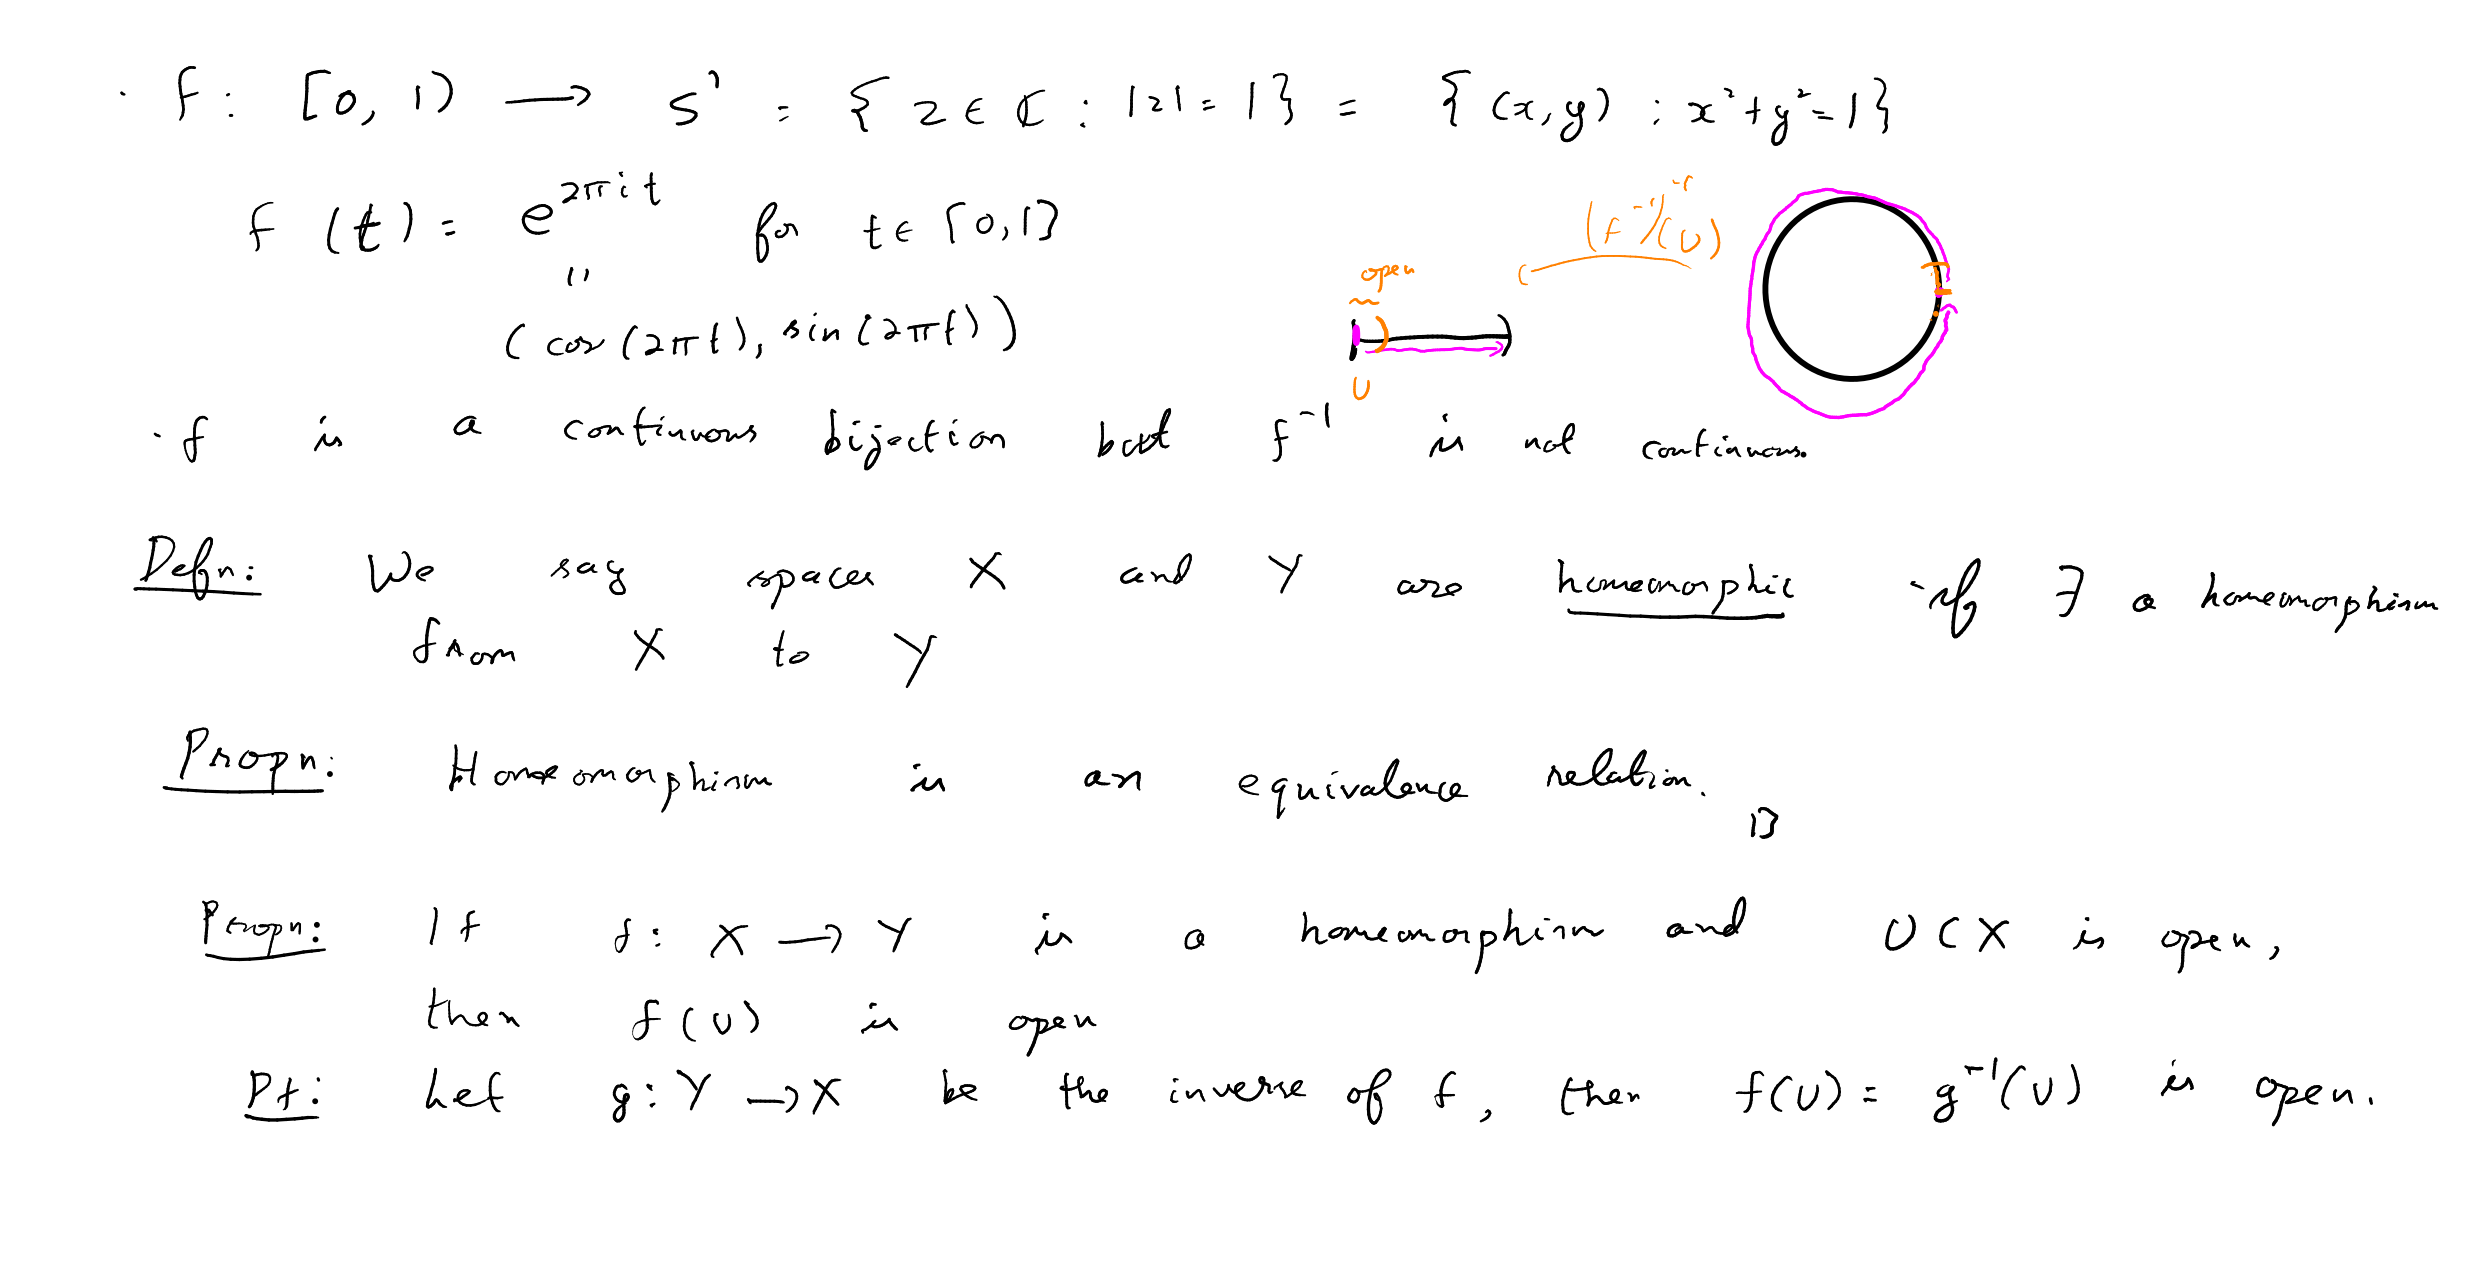 · f : [0, 1) → S¹ = { z ∈ ℂ : |z| = 1 } = { (x, y) : x² + y² = 1 }
f (t) = e^{2πit} for t ∈ [0, 1]
"
( cos (2πt), sin (2πt) )
(f⁻¹)⁻¹(U)
open
U
· f is a continuous bijection but f⁻¹ is not continuous.
Defn: We say spaces X and Y are homeomorphic if ∃ a homeomorphism
from X to Y
Propn: Homeomorphism is an equivalence relation.
□
Propn: If f : X → Y is a homeomorphism and U ⊂ X is open,
then f(U) is open
Pf: Let g : Y → X be the inverse of f, then f(U) = g⁻¹(U) is open.